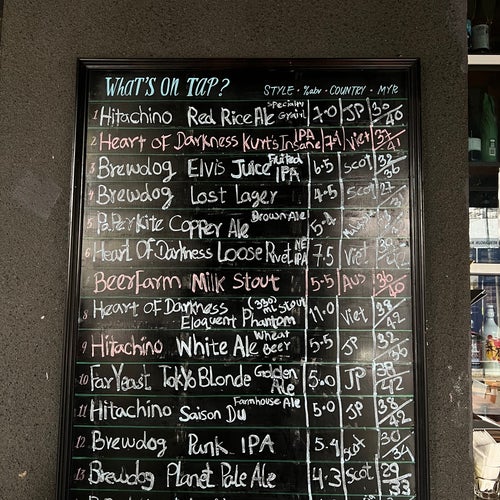 WHAT'S ON TAP? STYLE · %abv · COUNTRY · MYR
1 Hitachino Red Rice Ale Specialty Grain 7.0 JP 36/40
2 Heart of Darkness Kurt's Insane IPA 7.1 Viet 37/41
3 Brewdog Elvis Juice Fruited IPA 6.5 Scot 32/36
4 Brewdog Lost Lager 4.5 Scot 27/31
5 Kite Copper Ale Brown Ale 5.4
6 Heart Of Darkness Loose Rivet NE IPA 7.5 Viet
BeerFarm Milk Stout 5.5 Aus 36/40
8 Heart of Darkness Eloquent Phantom (330 ml) Stout 11.0 Viet 38/42
9 Hitachino White Ale Wheat Beer 5.5 JP 32/36
10 Far Yeast Tokyo Blonde Golden Ale 5.0 JP 38/42
11 Hitachino Saison Du Farmhouse Ale 5.0 JP 38/42
12 Brewdog Punk IPA 5.4 Scot 30/34
13 Brewdog Planet Pale Ale 4.3 Scot 29/33